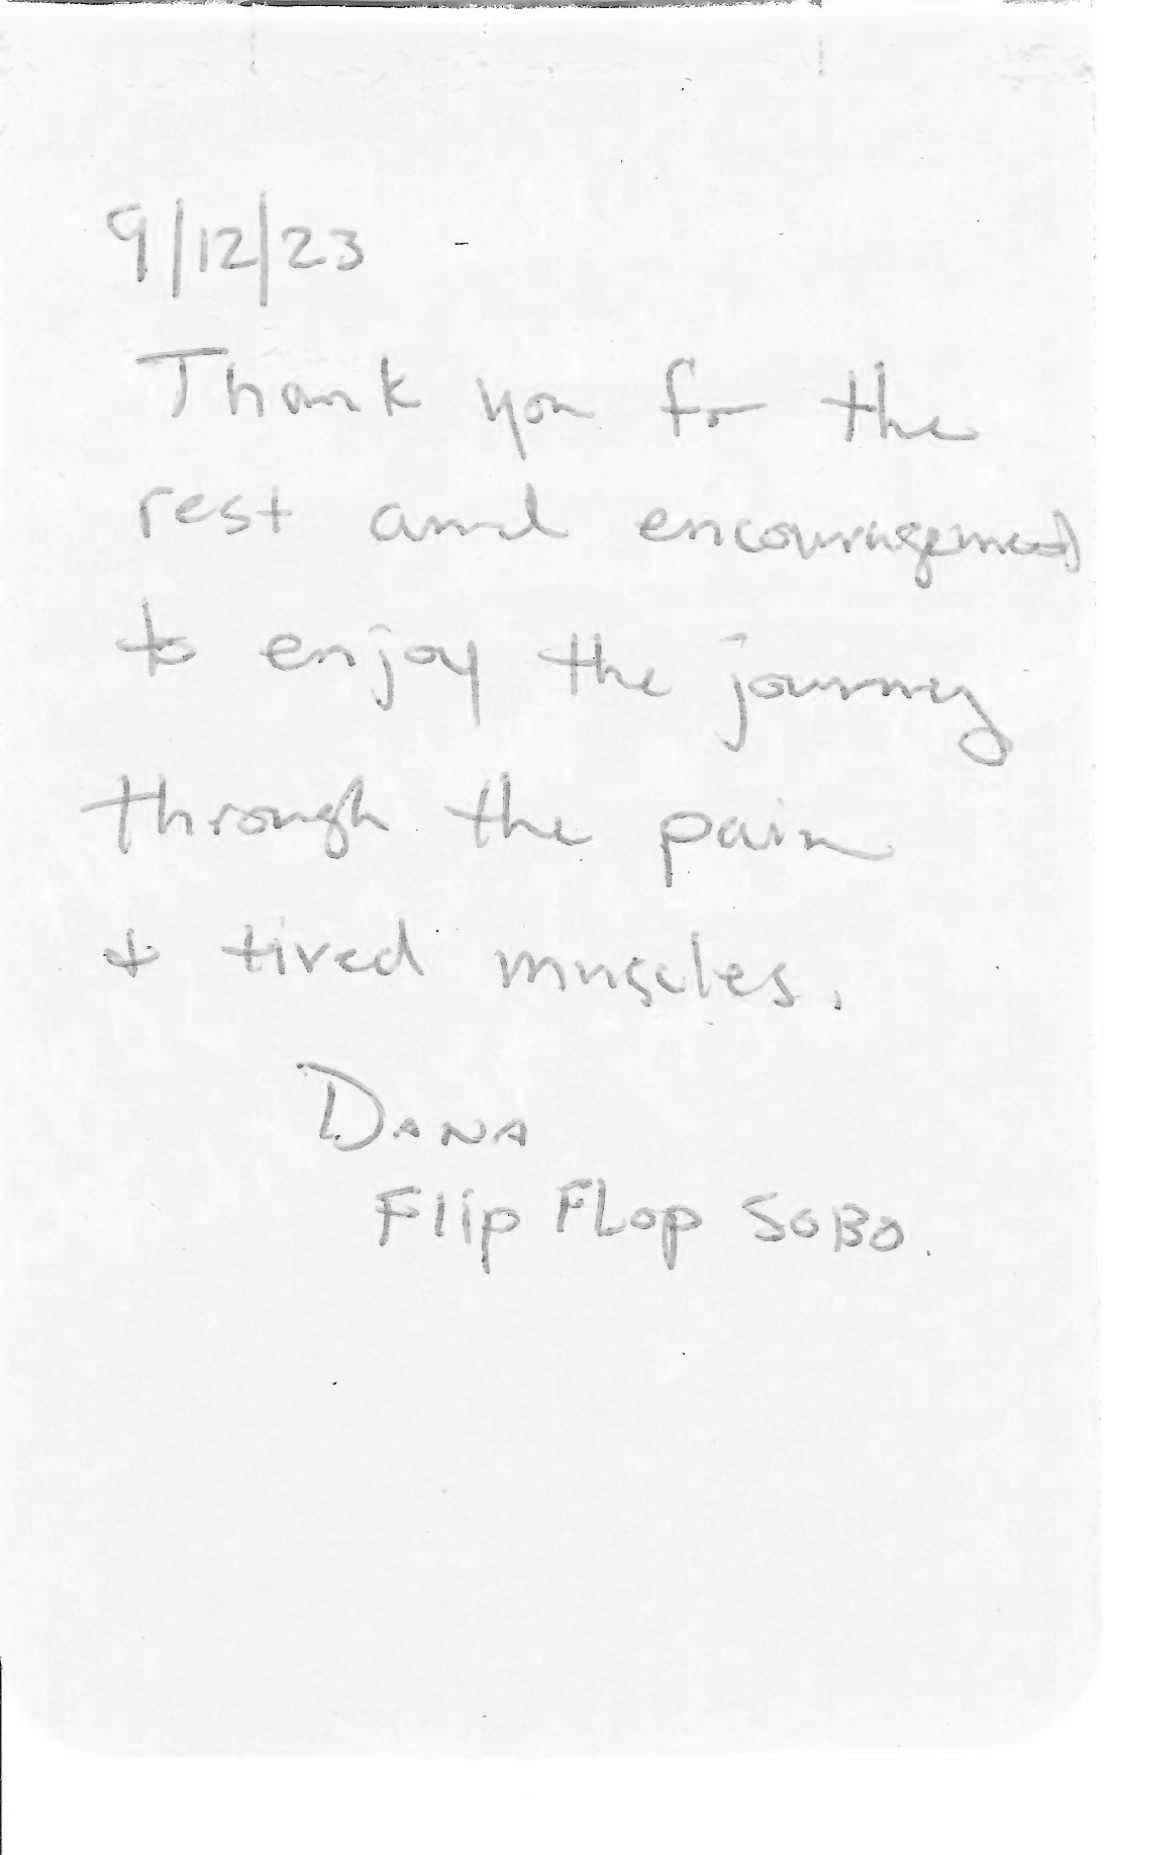 9/12/23
Thank you for the
rest and encouragement
to enjoy the journey
through the pain
& tired muscles.
DANA
Flip FLop SOBO.